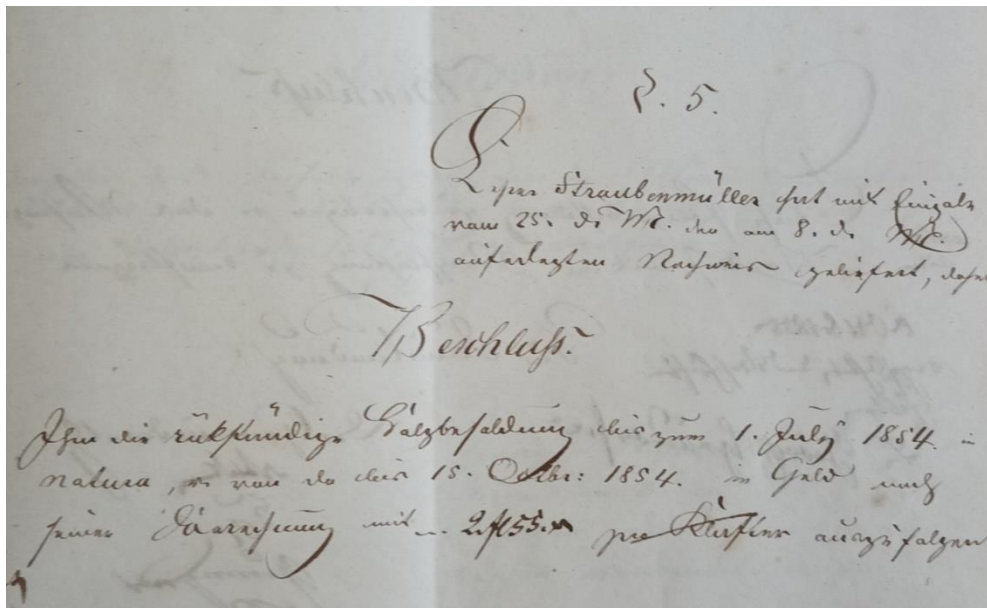 §. 5.
Straubenmüller hat mit Eingabe
vom 25. d. M. den am 8. d. M.
auferlegten Nachweis geliefert, daher
Beschluß.
Ihm die rükständige Holzbesoldung bis zum 1. July 1854. in
natura, u. von da bis 15. Octbr: 1854. in Geld nach
seiner Berechnung mit 2 fl 55. x pro Klafter auszufolgen